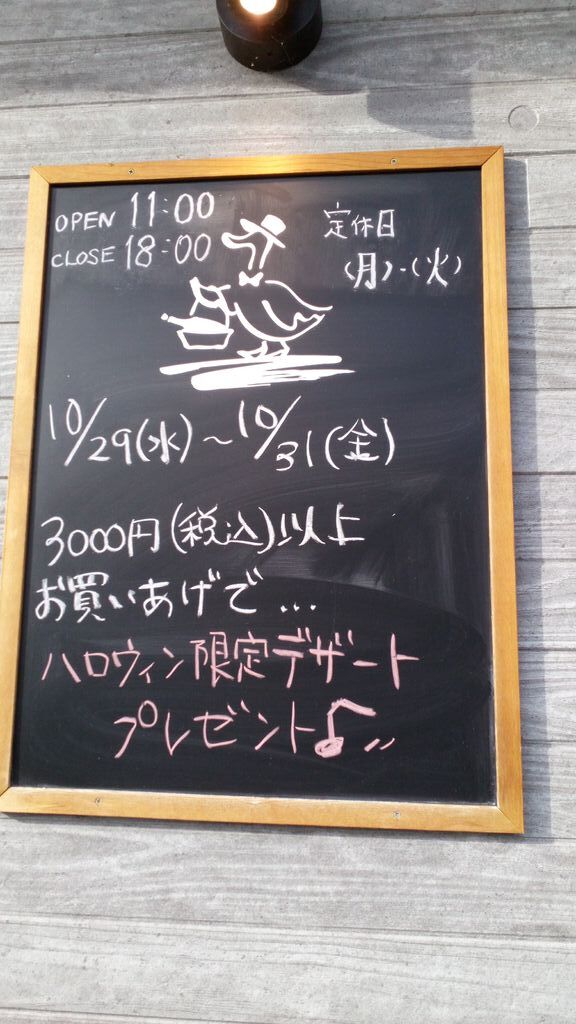 OPEN 11:00
CLOSE 18:00
定休日
(月)・(火)
10/29(水)~10/31(金)
3000円(税込)以上
お買いあげで...
ハロウィン限定デザート
プレゼント♪〃